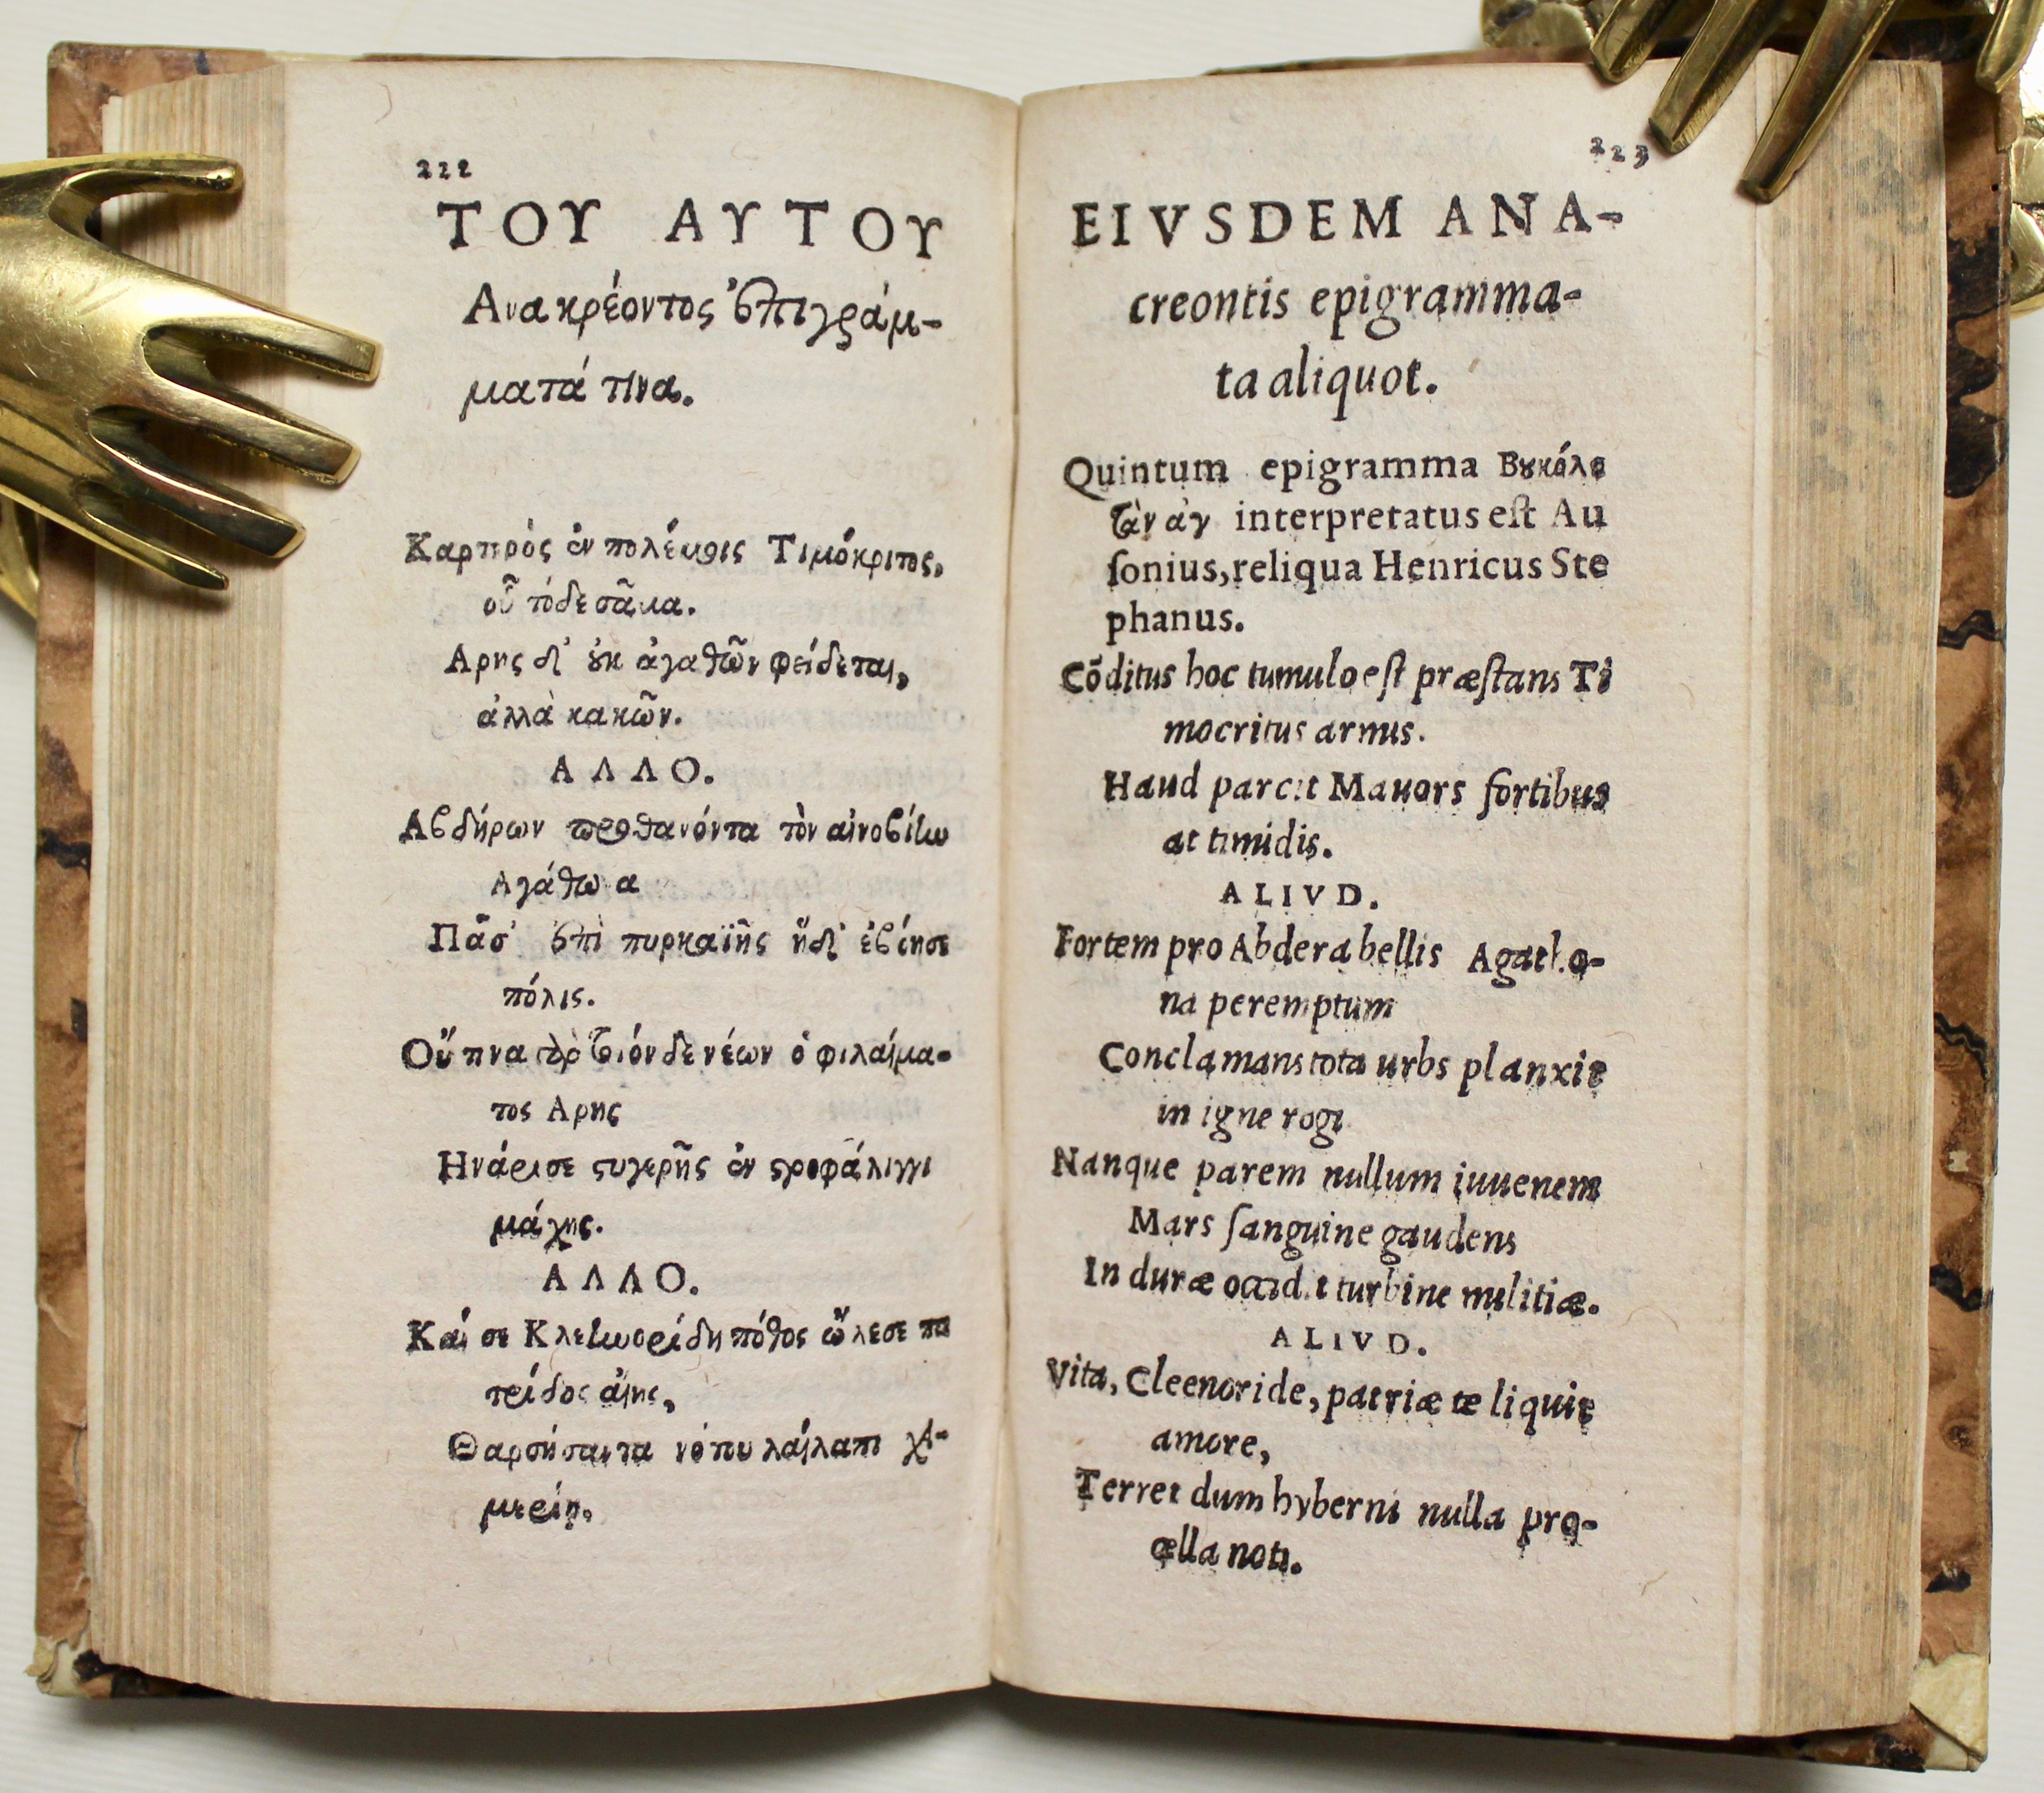 222
ΤΟΥ ΑΥΤΟΥ
Ανακρέοντος ἐπιγράμ-
ματά τινα.
Καρτερὸς ἐν πολέμοις Τιμόκριτος,
οὗ τόδε σᾶμα.
Αρης δ' οὐκ ἀγαθῶν φείδεται,
ἀλλὰ κακῶν.
ΑΛΛΟ.
Αβδήρων προθανόντα τὸν αἰνοβίην
Αγάθωνα
Πᾶσ' ἐπὶ πυρκαϊῆς ἥδ' ἐβόησε
πόλις.
Οὔ τινα γὰρ τοιόνδε νέων ὁ φιλαίμα-
τος Αρης
Ηνάρισε στυγερῆς ἐν στροφάλιγγι
μάχης.
ΑΛΛΟ.
Καί σε Κλεηνορίδη πόθος ὤλεσε πα
τρίδος αἴης,
Θαρσήσαντα νότου λαίλαπι χει-
μερίῃ.
223
EIVSDEM ANA-
creontis epigramma-
ta aliquot.
Quintum epigramma Βουκόλε
τὰν ἀγ interpretatus est Au
sonius, reliqua Henricus Ste
phanus.
Cõditus hoc tumulo est præstans Ti
mocritus armis.
Haud parcit Mauors fortibus
at timidis.
ALIVD.
Fortem pro Abdera bellis Agatho-
na peremptum
Conclamans tota urbs planxit
in igne rogi
Nanque parem nullum iuuenem
Mars sanguine gaudens
In duræ occidit turbine militiæ.
ALIVD.
Vita, Cleenoride, patriæ te liquit
amore,
Terret dum hyberni nulla pro-
cella noti.